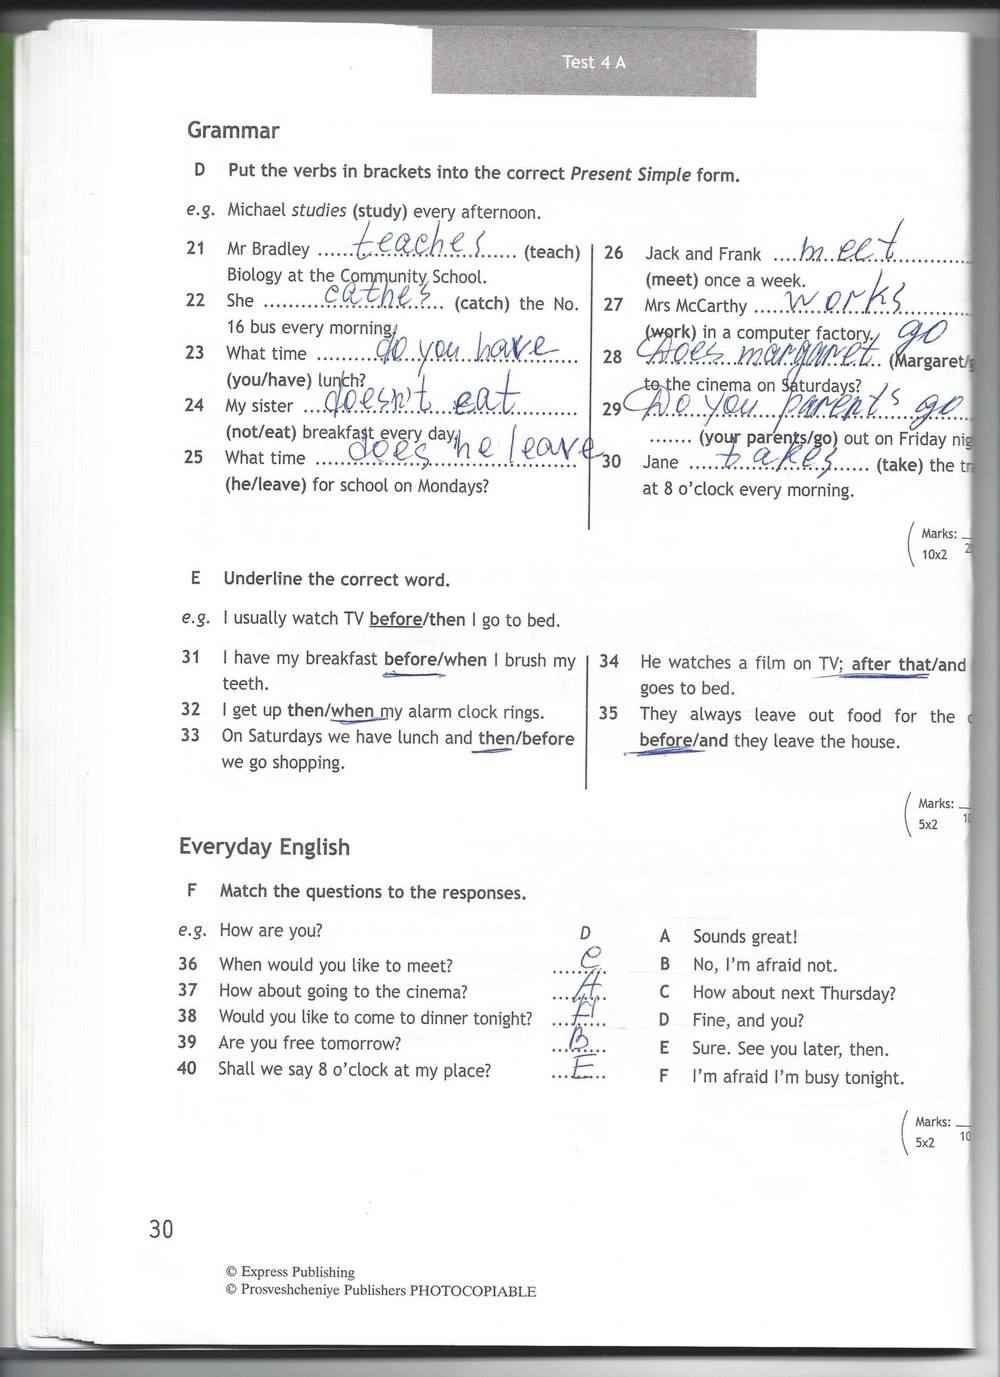 Test 4 A
Grammar
D Put the verbs in brackets into the correct Present Simple form.
e.g. Michael studies (study) every afternoon.
21 Mr Bradley ...teaches... (teach)
Biology at the Community School.
22 She ...cathes... (catch) the No.
16 bus every morning.
23 What time ...do you have...
(you/have) lunch?
24 My sister ...doesn't eat...
(not/eat) breakfast every day.
25 What time ...does he leave...
(he/leave) for school on Mondays?
26 Jack and Frank ...meet...
(meet) once a week.
27 Mrs McCarthy ...works...
(work) in a computer factory.
go
28 Does margaret... (Margaret/
to the cinema on Saturdays?
29 Do you parent's go
....... (your parents/go) out on Friday nig
30 Jane ...takes... (take) the tr
at 8 o'clock every morning.
Marks:
10x2
E Underline the correct word.
e.g. I usually watch TV before/then I go to bed.
31 I have my breakfast before/when I brush my
teeth.
32 I get up then/when my alarm clock rings.
33 On Saturdays we have lunch and then/before
we go shopping.
34 He watches a film on TV; after that/and
goes to bed.
35 They always leave out food for the
before/and they leave the house.
Marks:
5x2 10
Everyday English
F Match the questions to the responses.
e.g. How are you? D
36 When would you like to meet? ...C...
37 How about going to the cinema? ...A...
38 Would you like to come to dinner tonight?
39 Are you free tomorrow? ...B...
40 Shall we say 8 o'clock at my place? ...E...
A Sounds great!
B No, I'm afraid not.
C How about next Thursday?
D Fine, and you?
E Sure. See you later, then.
F I'm afraid I'm busy tonight.
Marks:
5x2 10
30
© Express Publishing
© Prosveshcheniye Publishers PHOTOCOPIABLE